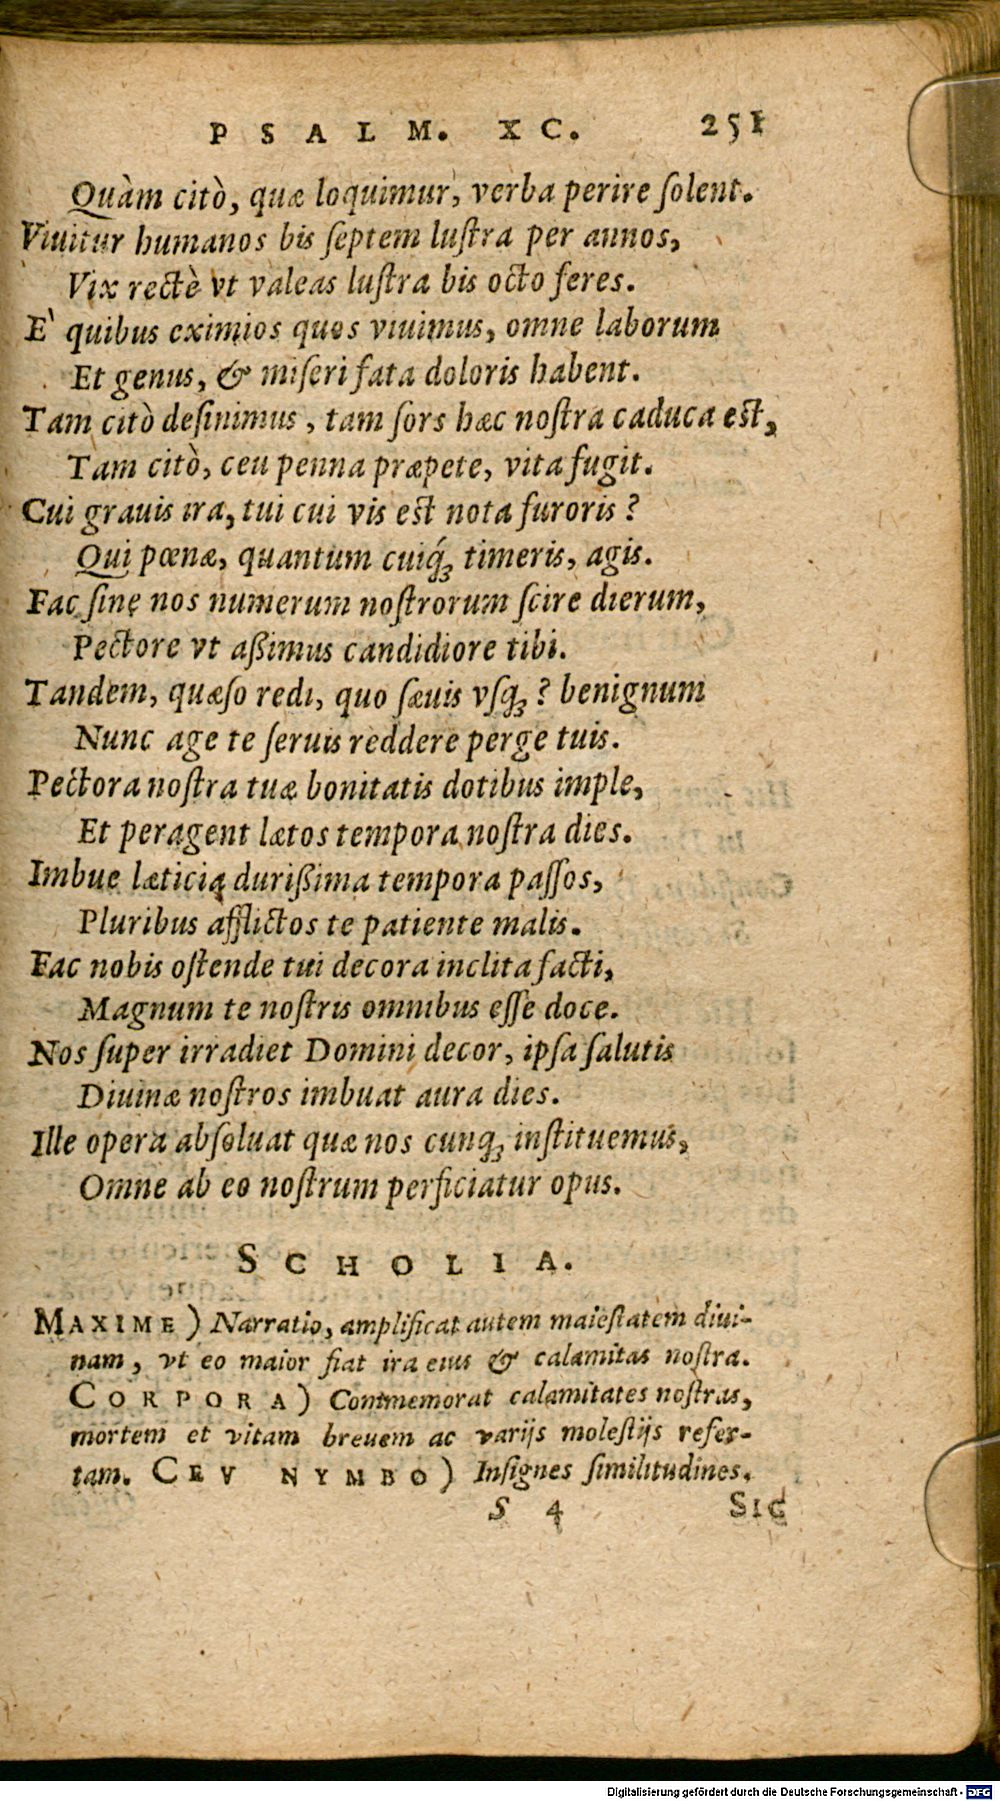 PSALM. XC. 251
Quàm citò, quæ loquimur, verba perire ſolent.
Viuitur humanos bis ſeptem luſtra per annos,
Vix rectè vt valeas luſtra bis octo feres.
E' quibus eximios quos viuimus, omne laborum
Et genus, & miſeri fata doloris habent.
Tam citò deſinimus, tam ſors hæc noſtra caduca eſt,
Tam citò, ceu penna præpete, vita fugit.
Cui grauis ira, tui cui vis eſt nota furoris?
Qui pœnæ, quantum cuiq́ꝫ timeris, agis.
Fac ſine nos numerum noſtrorum ſcire dierum,
Pectore vt aßimus candidiore tibi.
Tandem, quæſo redi, quo ſæuis vſqꝫ? benignum
Nunc age te ſeruis reddere perge tuis.
Pectora noſtra tuæ bonitatis dotibus imple,
Et peragent lætos tempora noſtra dies.
Imbue læticia durißima tempora paſſos,
Pluribus afflictos te patiente malis.
Fac nobis oſtende tui decora inclita facti,
Magnum te noſtris omnibus eſſe doce.
Nos ſuper irradiet Domini decor, ipſa ſalutis
Diuinæ noſtros imbuat aura dies.
Ille opera abſoluat quæ nos cunqꝫ inſtituemus,
Omne ab eo noſtrum perficiatur opus.
SCHOLIA.
MAXIME) Narratio, amplificat autem maieſtatem diui-
nam, vt eo maior fiat ira eius & calamitas noſtra.
CORPORA) Commemorat calamitates noſtras,
mortem et vitam breuem ac varijs moleſtijs refer-
tam. CEV NYMBO) Inſignes ſimilitudines.
S 4 SIC
Digitalisierung gefördert durch die Deutsche Forschungsgemeinschaft - DFG